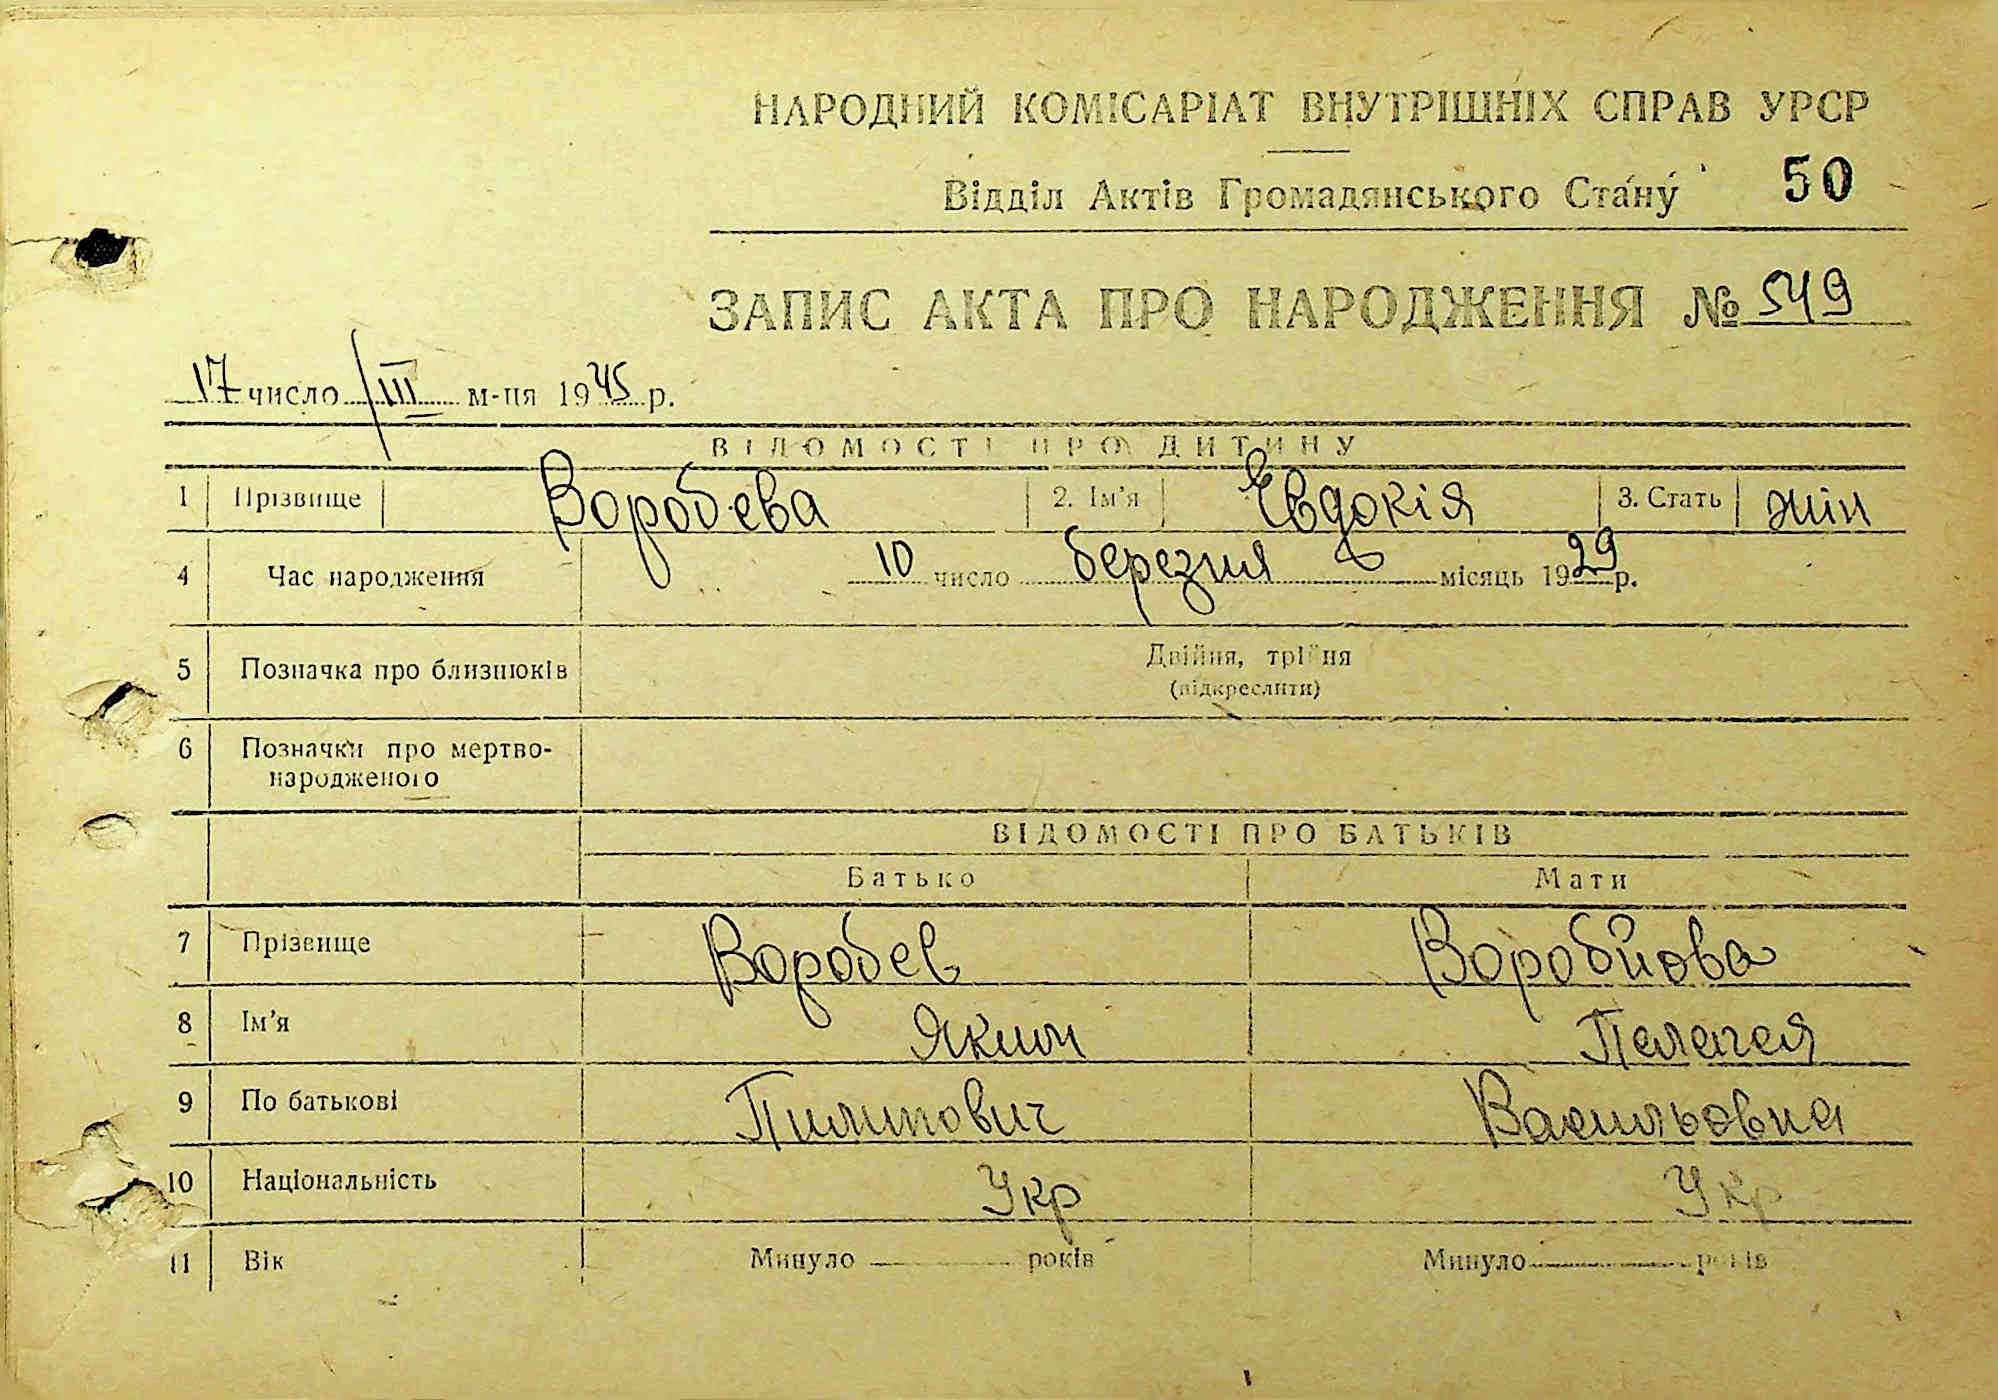 НАРОДНИЙ КОМІСАРІАТ ВНУТРІШНІХ СПРАВ УРСР
Відділ Актів Громадянського Стану 50
ЗАПИС АКТА ПРО НАРОДЖЕННЯ № 549
17 число III м-ця 1945 р.
ВІДОМОСТІ ПРО ДИТИНУ
1 Прізвище Воробєва 2. Ім'я Евдокія 3. Стать жін
4 Час народження 10 число березня місяць 1929 р.
5 Позначка про близнюків Двійня, трійня
(підкреслити)
6 Позначки про мертво-
народженого
ВІДОМОСТІ ПРО БАТЬКІВ
Батько Мати
7 Прізвище Воробєв Воробйова
8 Ім'я Яким Пелагея
9 По батькові Пилипович Васильовна
10 Національність Укр Укр
11 Вік Минуло років Минуло років